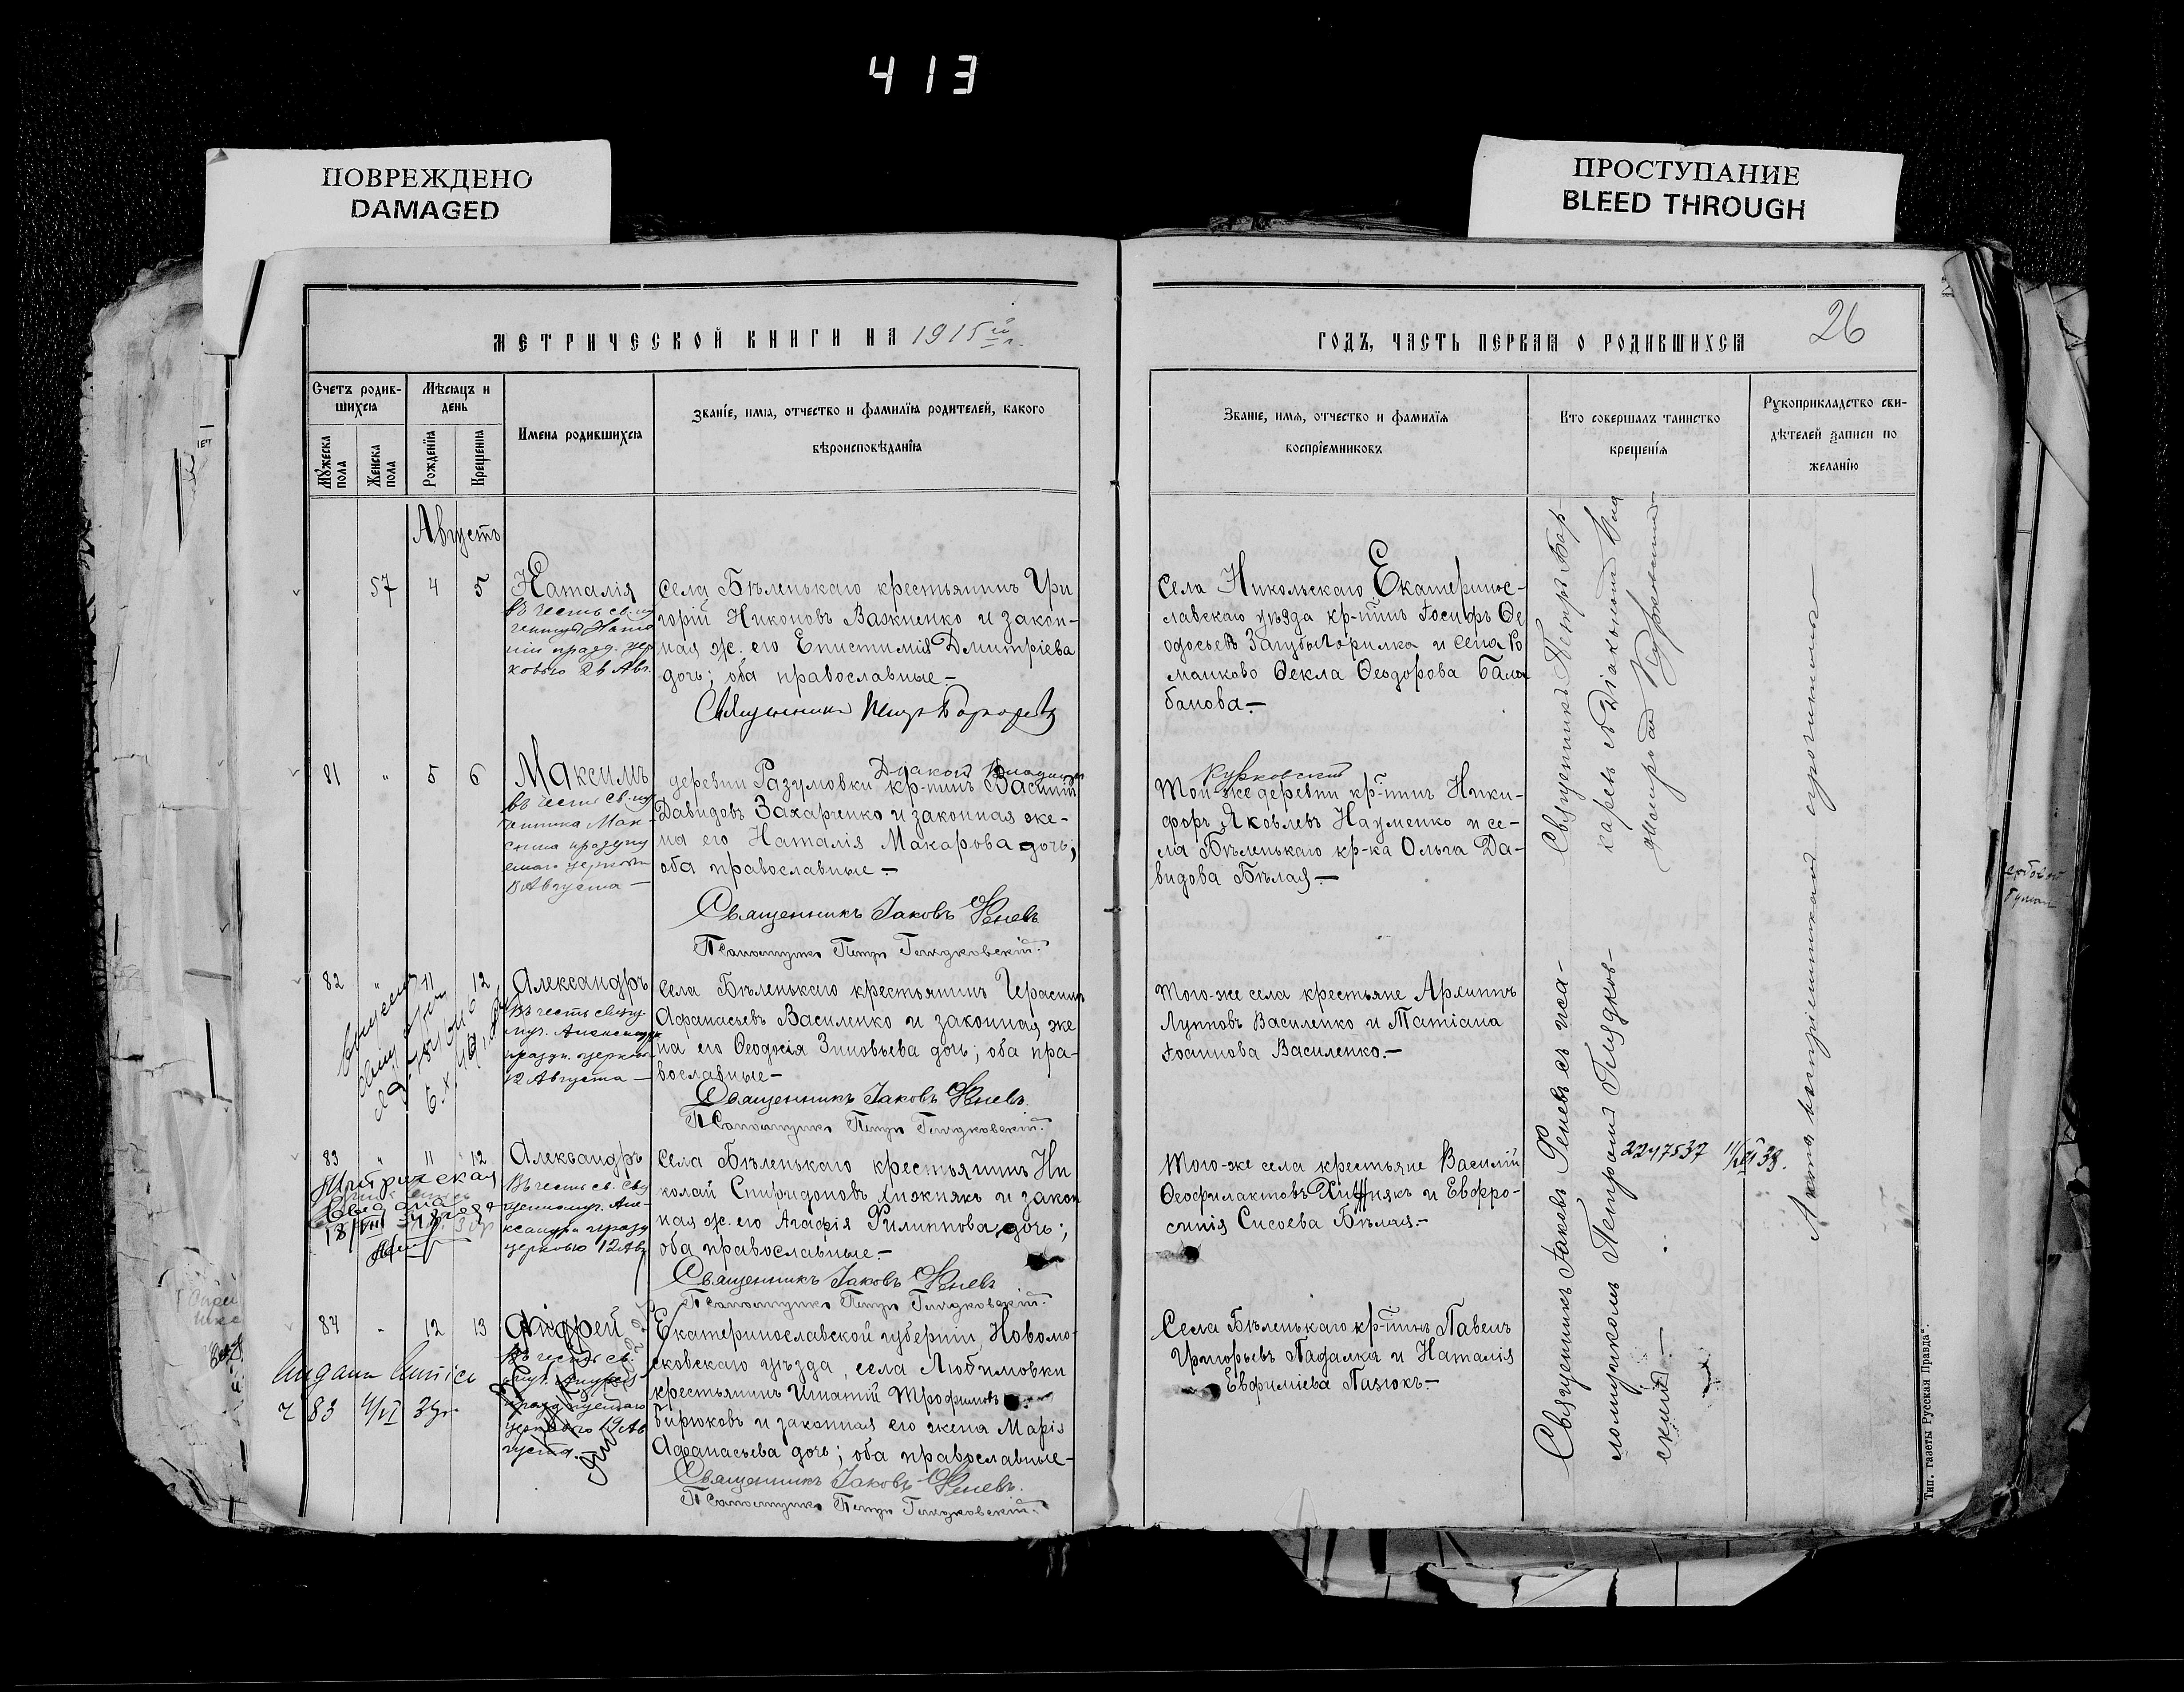 413
ПОВРЕЖДЕНО
DAMAGED
ПРОСТУПАНИЕ
BLEED THROUGH
МЕТРИЧЕСКОЙ КНИГИ НА 1915й г.
ГОДЪ, ЧАСТЬ ПЕРВАЯ О РОДИВШИХСЯ
26
Счетъ родив-
шихся
Мѣсяцъ и
день
Мужеска пола
Женска пола
Рожденія
Крещенія
Имена родившихся
Званіе, имя, отчество и фамилія родителей, какого
вѣроисповѣданія
Званіе, имя, отчество и фамилія
воспріемниковъ
Кто совершалъ таинство
крещенія
Рукоприкладство сви-
дѣтелей записи по
желанію
Августъ
57 4 5 Наталія
Въ честь св. му
ченицы Ната
ліи празд. цер
ковью 26 Авг.
села Бѣленькаго крестьянинъ Гри
горій Никоновъ Вазкненко и закон-
ная ж. его Епистимія Дмитріева
дочь; оба православные.—
Священникъ Петръ
Села Никольскаго Екатеринос-
лавскаго уѣзда кр-нинъ Іосифъ Ѳе
одосьевъ Загубыгорилка и села Ро
манково Ѳекла Ѳеодорова Бала
банова.—
81 " 5 6 Максимъ
Въ честь св. му
ченика Мак-
сима праздну
емаго церковью
13 Августа—
Діаконъ
Курковскій
деревни Разумовки кр-нинъ Василій
Давидовъ Захарченко и законная же-
на его Наталія Макарова дочь;
оба православные.—
Священникъ Іаковъ Фенев
Псаломщикъ Петръ Глядковскій.
Той-же деревни кр-нинъ Ники-
форъ Яковлевъ Науменко и се-
ла Бѣленькаго кр-ка Ольга Да-
видова Бѣлая.—
82 " 11 12 Александръ
Въ честь свящ.
муч. Александра
праздн. церков.
12 Августа—
села Бѣленькаго крестьянинъ Герасимъ
Афанасьевъ Василенко и законная же
на его Ѳеодосія Зиновьева дочь; оба пра-
вославные—
Священникъ Іаковъ Фенев
Псаломщикъ Петръ Глядковскій.
Того-же села крестьяне Архиппъ
Лупповъ Василенко и Татіана
Іоаннова Василенко.—
83 " 11 12 Александръ
Въ честь св. свя
щенномуч. Але-
ксандра празд
церковью 12 Авг
села Бѣленькаго крестьянинъ Ни
колай Спиридоновъ Хижнякъ и закон
ная ж. его Агафія Филиппова дочь;
оба православные.—
Священникъ Іаковъ Фенев
Псаломщикъ Петръ Глядковскій.
Того-же села крестьяне Василій
Ѳеофилактовъ Хижнякъ и Евфро-
синія Сисоева Бѣлая.—
2247537 11/XI 38.
84 " 12 13 Андрей
Въ честь св.
муч. Андрея
празднуемаго
церковью 19 Ав
густа.
Екатеринославской губерніи, Новомо-
сковскаго уѣзда, села Любимовки
крестьянинъ Игнатій Трофимовъ
Бирюковъ и законная его жена Марія
Афанасьева дочь; оба православные—
Священникъ Іаковъ Фенев.
Псаломщикъ Петръ Глядковскій.
Села Бѣленькаго кр-нинъ Павелъ
Григорьевъ Падалка и Наталія
Евфиміева Пазюкъ.—
Священникъ Петръ Бор-
съ Діакономъ
Священникъ Іаковъ Феневъ съ пса-
ломщикомъ Петромъ Глядков-
скимъ.—
Тип. газеты „Русская Правда“.